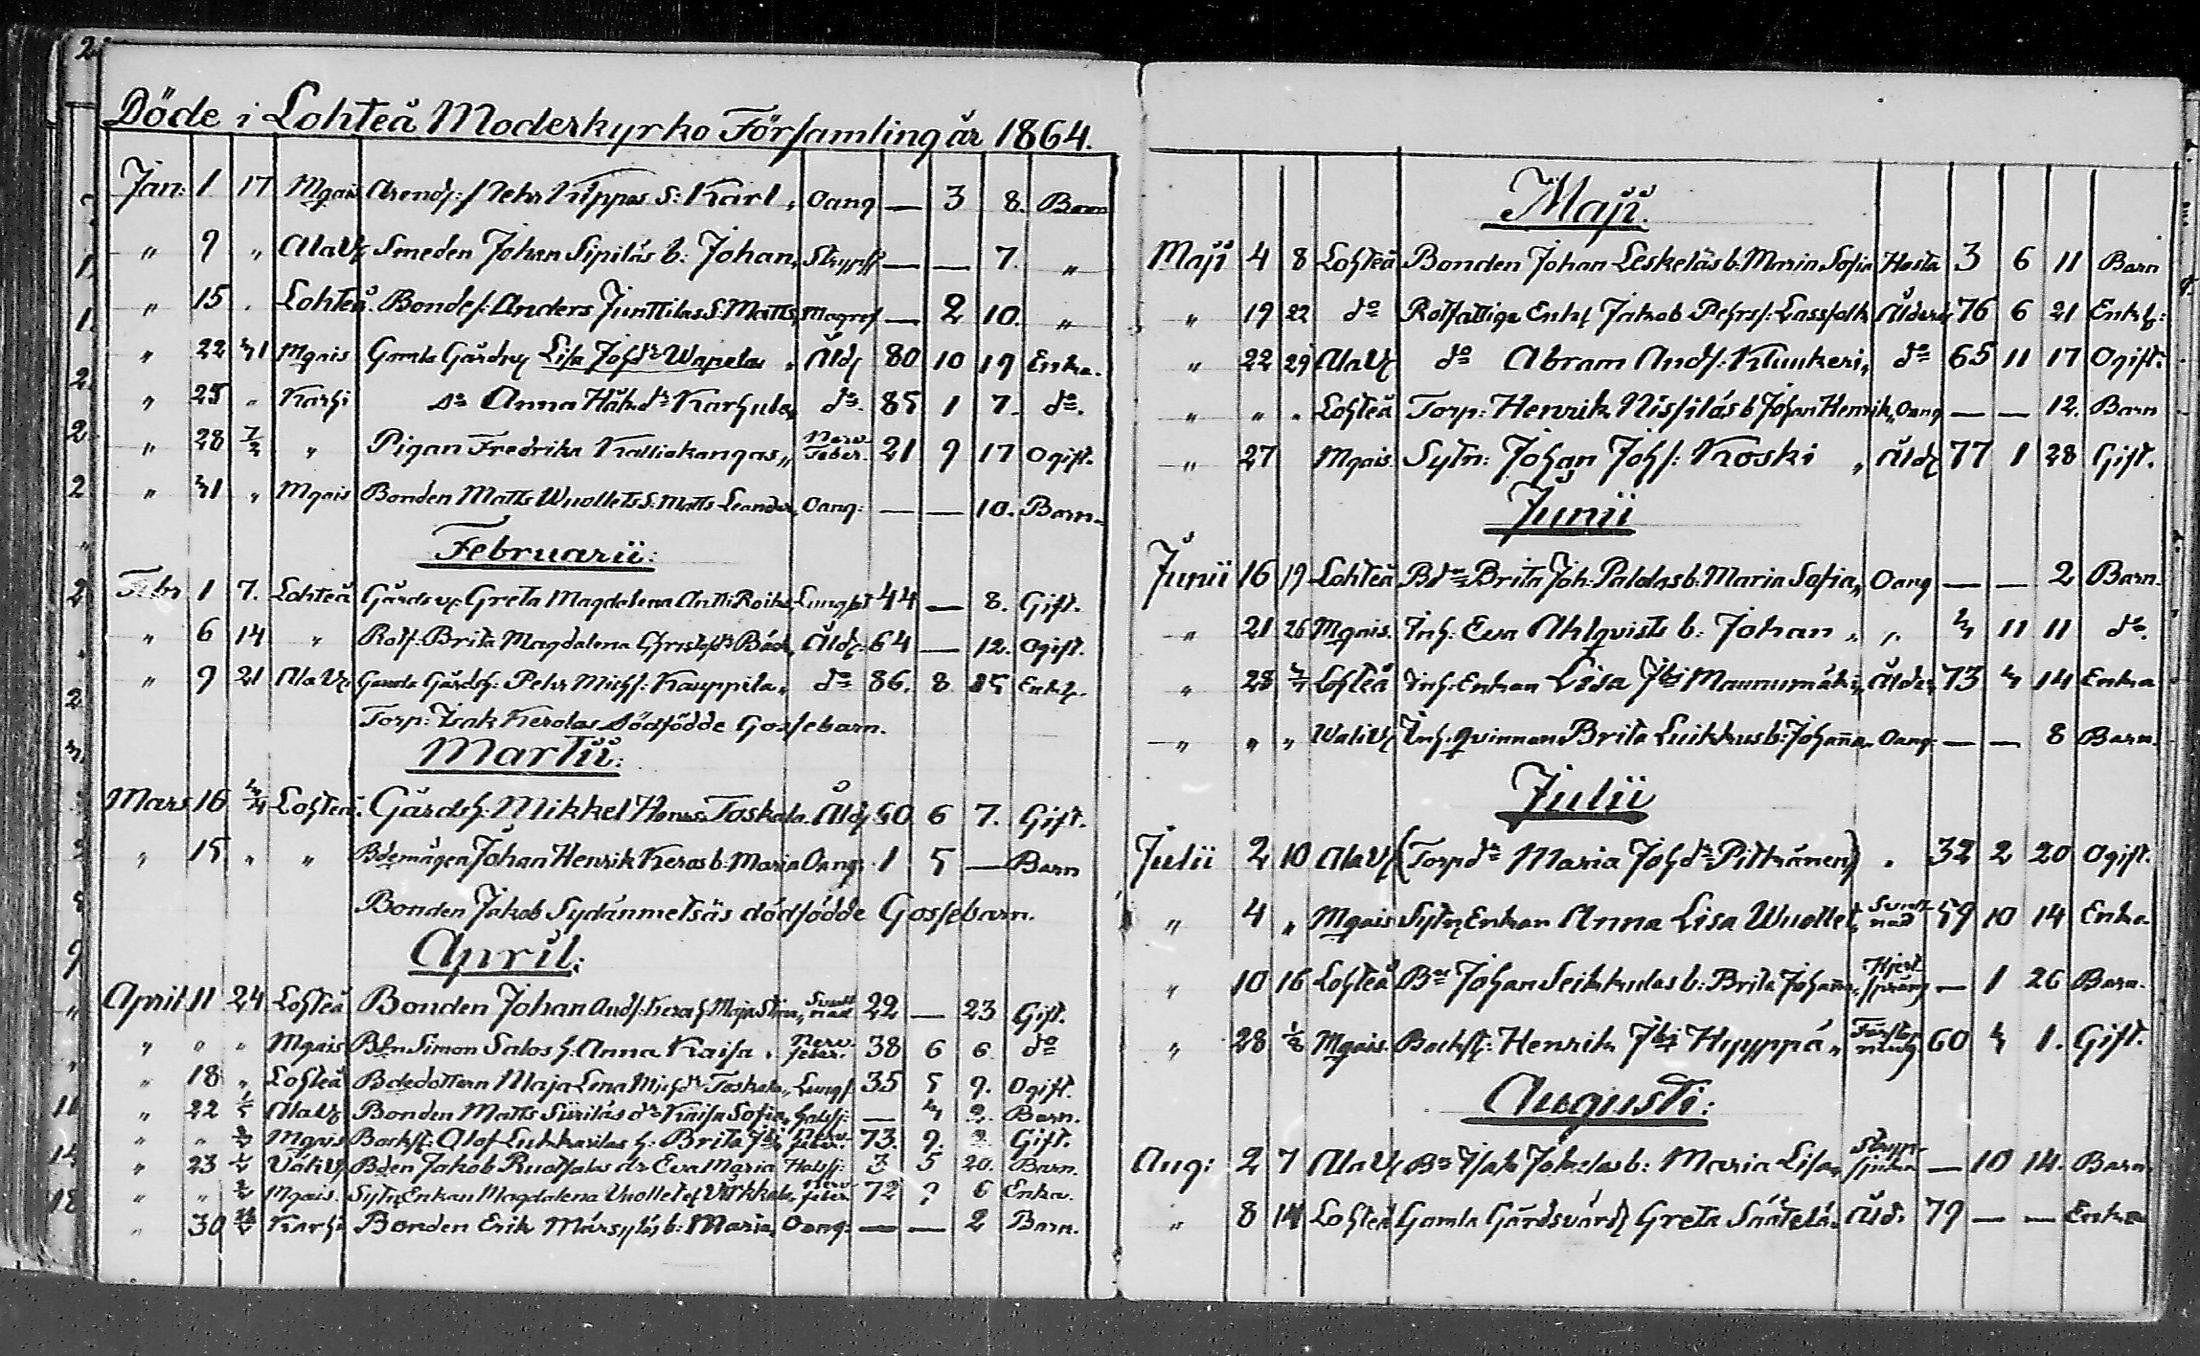 2
Döde i Lohteå Moderkyrko Församling år 1864.
Jan: 1 17 Mgais Arends: Pehr Kyppos S: Karl, Oang — 3 8. Barn
" 9 " AlaV Smeden Johan Sipiläs b: Johan, Strypss — — 7. "
" 15 " Lohteå Bondes: Anders Junttilas S: Matts, Magref — 2 10. "
" 22 31 Mgais Gamla Gårdv Lisa Johdr Wapela, Åld 80 10 19 Enka.
" 25 " Karhi do Anna Karhula, do. 85 1 7. do.
" 28 7/2 " Pigan Fredrika Kalliokangas, Nerv Feber. 21 9 17 Ogift.
" 31 " Mgais Bonden Matts Wuollets S: Matts Leander, Oang: — — 10. Barn.
Februarii:
Febr 1 7. Lohteå Gårdsv: Greta Magdalena Antti Roiko, Lungsot 44 — 8. Gift.
" 6 14 " Rotf: Brita Magdalena Båck, Åld: 64 — 12. Ogift.
" 9 21 AlaV Gamla Gårdsh: Pehr Michs: Kauppila, do 86. 8 25 Enkl.
Torp: Isak Kerolas dödfödde Gossebarn.
Martii:
Mars 16 Lohteå. Gårdsh: Mikkel Henrs: Toskala. Åld 60 6 7. Gift.
" 15 " " Bdemågen Johan Henrik Keros b: Maria Oang: 1 5 — Barn
Bonden Jakob Sydänmetsäs dödfödde Gossebarn.
April:
April 11 24 Lohteå Bonden Johan Ands: Kera h Maja Stina, Svullnad 22 — 23 Gift.
" " " Mgais Bdn Simon Salos h: Anna Kaisa, Nerv feber. 38 6 6 do
" 18 " Lohteå Bdedottern Maja Lena Michdr Toskala, Lungs 35 5 9. Ogift.
" 22 1/5 AlaV Bonden Matts Siiriläs dr Kaisa Sofia, Halssj: — 3 2. Barn.
" " Mgais Backst: Olof Lukkarilas h: Brita Nerv feber. 73. 9. 2 Gift.
" 23 VäliV Bden Jakob Ruotsalas dr Eva Maria Halssj: 3 5 20. Barn.
" " Mgais. Sytn Enkan Magdalena Vuollet Virkkala, Nerv feber 72 ? 6 Enka.
" 30 Karhi Bonden Erik Märsyläs b: Maria, Oang: — — 2 Barn.
Maji.
Maji 4 8 Lohteå Bonden Johan Leskeläs b: Maria Sofia Hosta 3 6 11 Barn
" 19 22 do Rotfattige Enkl Jakob Pehrs: Lassfolk Ålderd 76 6 21 Enkl:
" 22 29 AlaV do Abram Ands: Klunkeri, do 65 11 17 Ogift.
" " " Lohteå Torp: Henrik Nissiläs b Johan Henrik, Oang — — 12. Barn
" 27 Mgais. Sytn: Johan Johs: Koski, Åld 77 1 28 Gift.
Junii
Junii 16 19 Lohteå Bdn Brita Joh: Palolas b: Maria Sofia, Oang — — 2 Barn.
" 21 26 Mgais. Inh: Eva Ahlqvists b: Johan, " 3 11 11 do.
" 28 3/7 Lohteå Inh: Enkan Lisa Maunumäki, Ålder, 73 3 14 Enka
" " " WäliV Inh: Qvinnan Brita Luikkus b: Johanna, Oang — — 8 Barn.
Julii
Julii 2 10 AlaV (Torpdr Maria Johdr Pitkänen) " 32 2 20 Ogift.
" 4 " Mgais Sytn Enkan Anna Lisa Wuollet, Svullnad 59 10 14 Enka.
" 10 16 Lohteå Bn Johan Seikkulas b: Brita Johanna, Hjertsprång — 1 26 Barn.
" 28 1/8 Mgais. Backst: Henrik Hyyppä, Förstoppning 60 3 1. Gift.
Augusti:
Aug: 2 7 AlaV Bn Isak Jokelas b: Maria Lisa, Strypsjuka — 10 14. Barn
" 8 14 Lohteå Gamla Gårdsvärd Greta Säätelä, Åld: 79 — — Enka